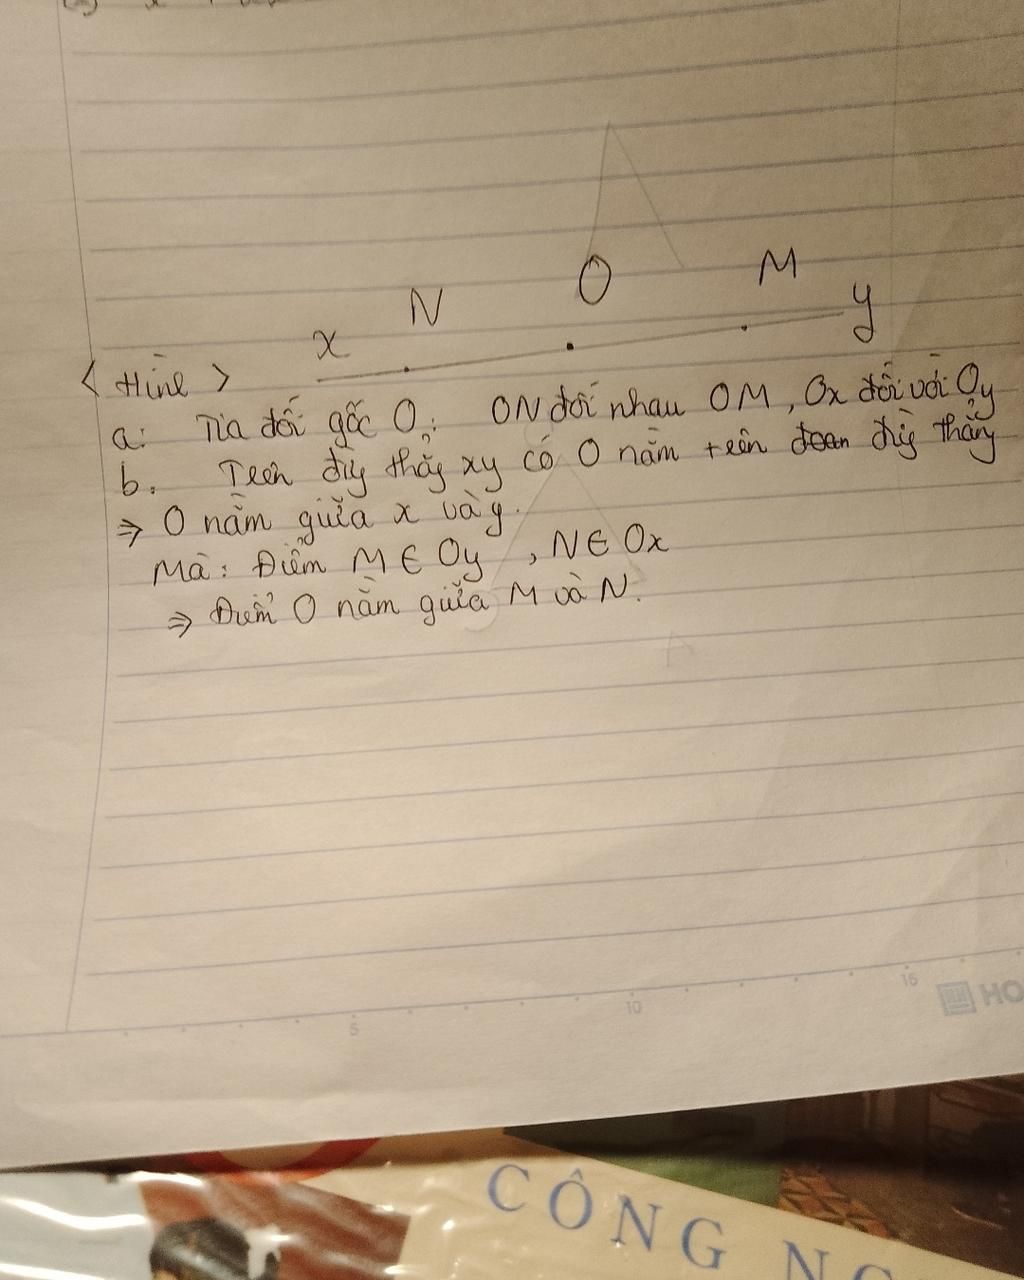 N O M
x y
< Hình >
a: Tia đối gốc O: ON đối nhau OM, Ox đối với Oy
b. Trên đg thẳg xy có O nằm trên đoạn đg thẳg
⇒ O nằm giữa x và y.
Mà: Điểm M ∈ Oy , N ∈ Ox
⇒ Điểm O nằm giữa M và N.
A
5 10 15
HO
CÔNG NG